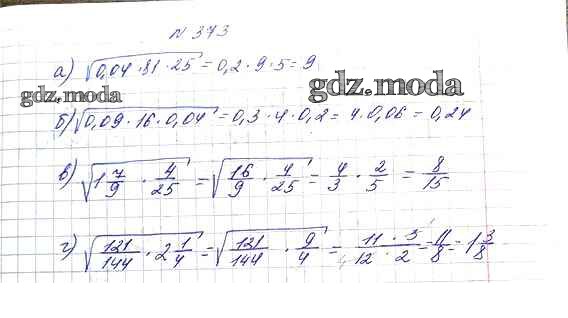 N 373
а) √0,04 · 81 · 25 = 0,2 · 9 · 5 = 9
gdz.moda
gdz.moda
б) √0,09 · 16 · 0,04 = 0,3 · 4 · 0,2 = 4 · 0,06 = 0,24
в) √1 7/9 · 4/25 = √16/9 · 4/25 = 4/3 · 2/5 = 8/15
г) √121/144 · 2 1/4 = √121/144 · 9/4 = 11 · 3/12 · 2 = 11/8 = 1 3/8